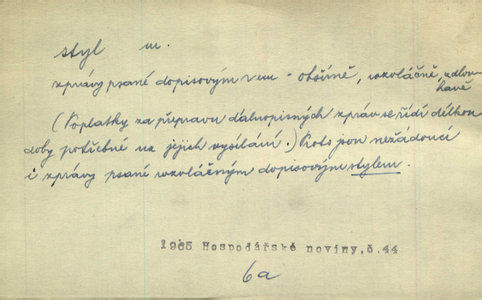 styl m.
zprávy psané dopisovým s em - obšírně, rozvláčně, zdlou-
havě
(Poplatky za přepravu dálnopisných zpráv se řídí délkou
doby potřebné na jejich vysílání.) Proto jsou nežádoucí
i zprávy psané rozvláčným dopisovým stylem.
1965 Hospodářské noviny, č. 44
6a